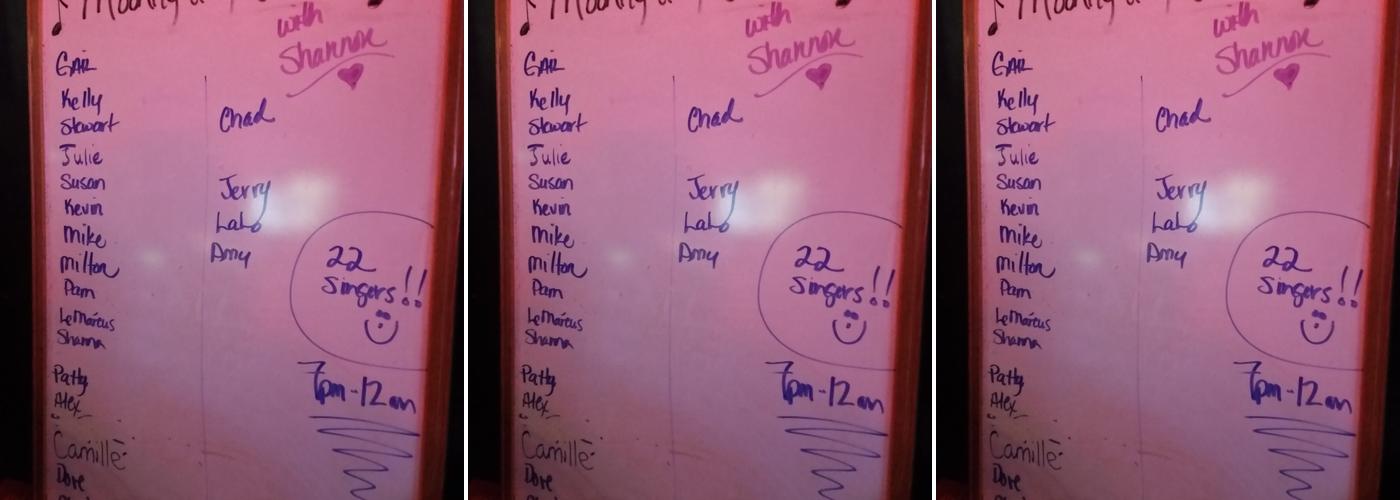 with
Shannon
GAIL
Kelly
Stewart
Julie
Susan
Kevin
Mike
Milton
Pam
LeMarcus
Shanna
Patty
Alex
Camille
Dore
Chad
Jerry
LaLo
Amy
22
singers!!
7pm-12am
with
Shannon
GAIL
Kelly
Stewart
Julie
Susan
Kevin
Mike
Milton
Pam
LeMarcus
Shanna
Patty
Alex
Camille
Dore
Chad
Jerry
LaLo
Amy
22
singers!!
7pm-12am
with
Shannon
GAIL
Kelly
Stewart
Julie
Susan
Kevin
Mike
Milton
Pam
LeMarcus
Shanna
Patty
Alex
Camille
Dore
Chad
Jerry
LaLo
Amy
22
singers!!
7pm-12am